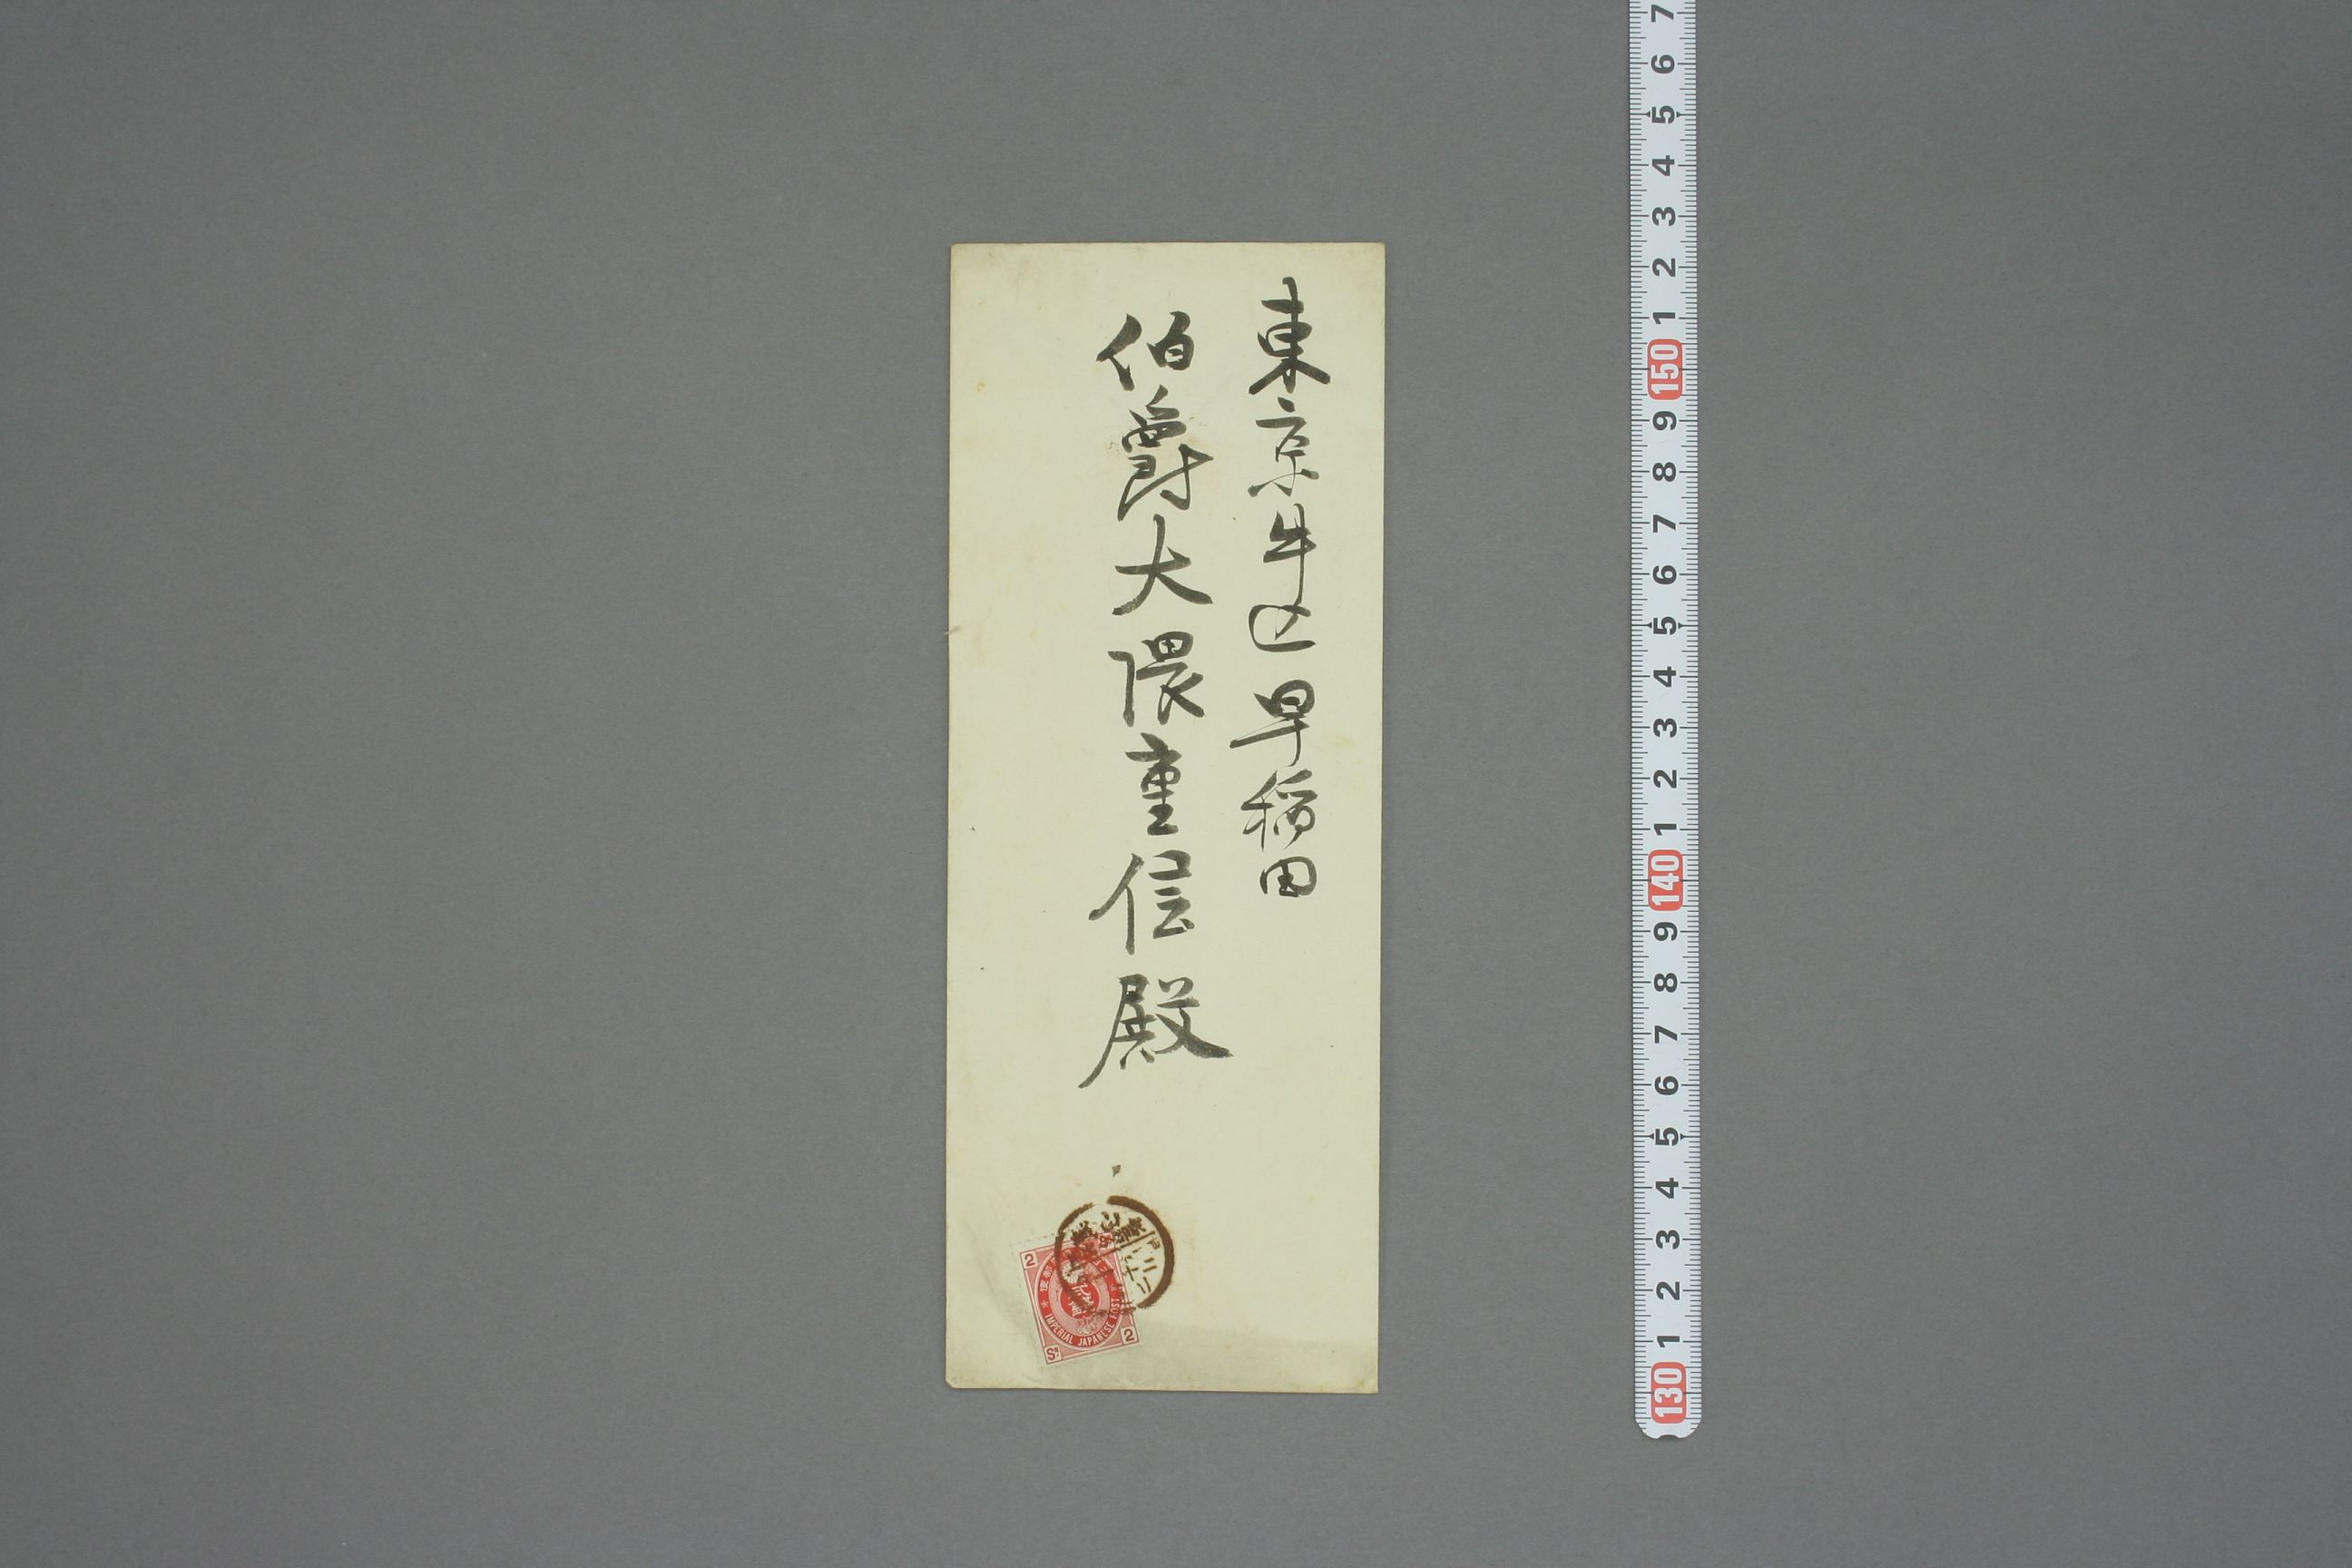 東京牛込早稲田
伯爵大隈重信殿
2
IMPERIAL JAPANESE POST
2
Sn
7
6
5
4
3
2
1
150
9
8
7
6
5
4
3
2
1
140
9
8
7
6
5
4
3
2
1
130